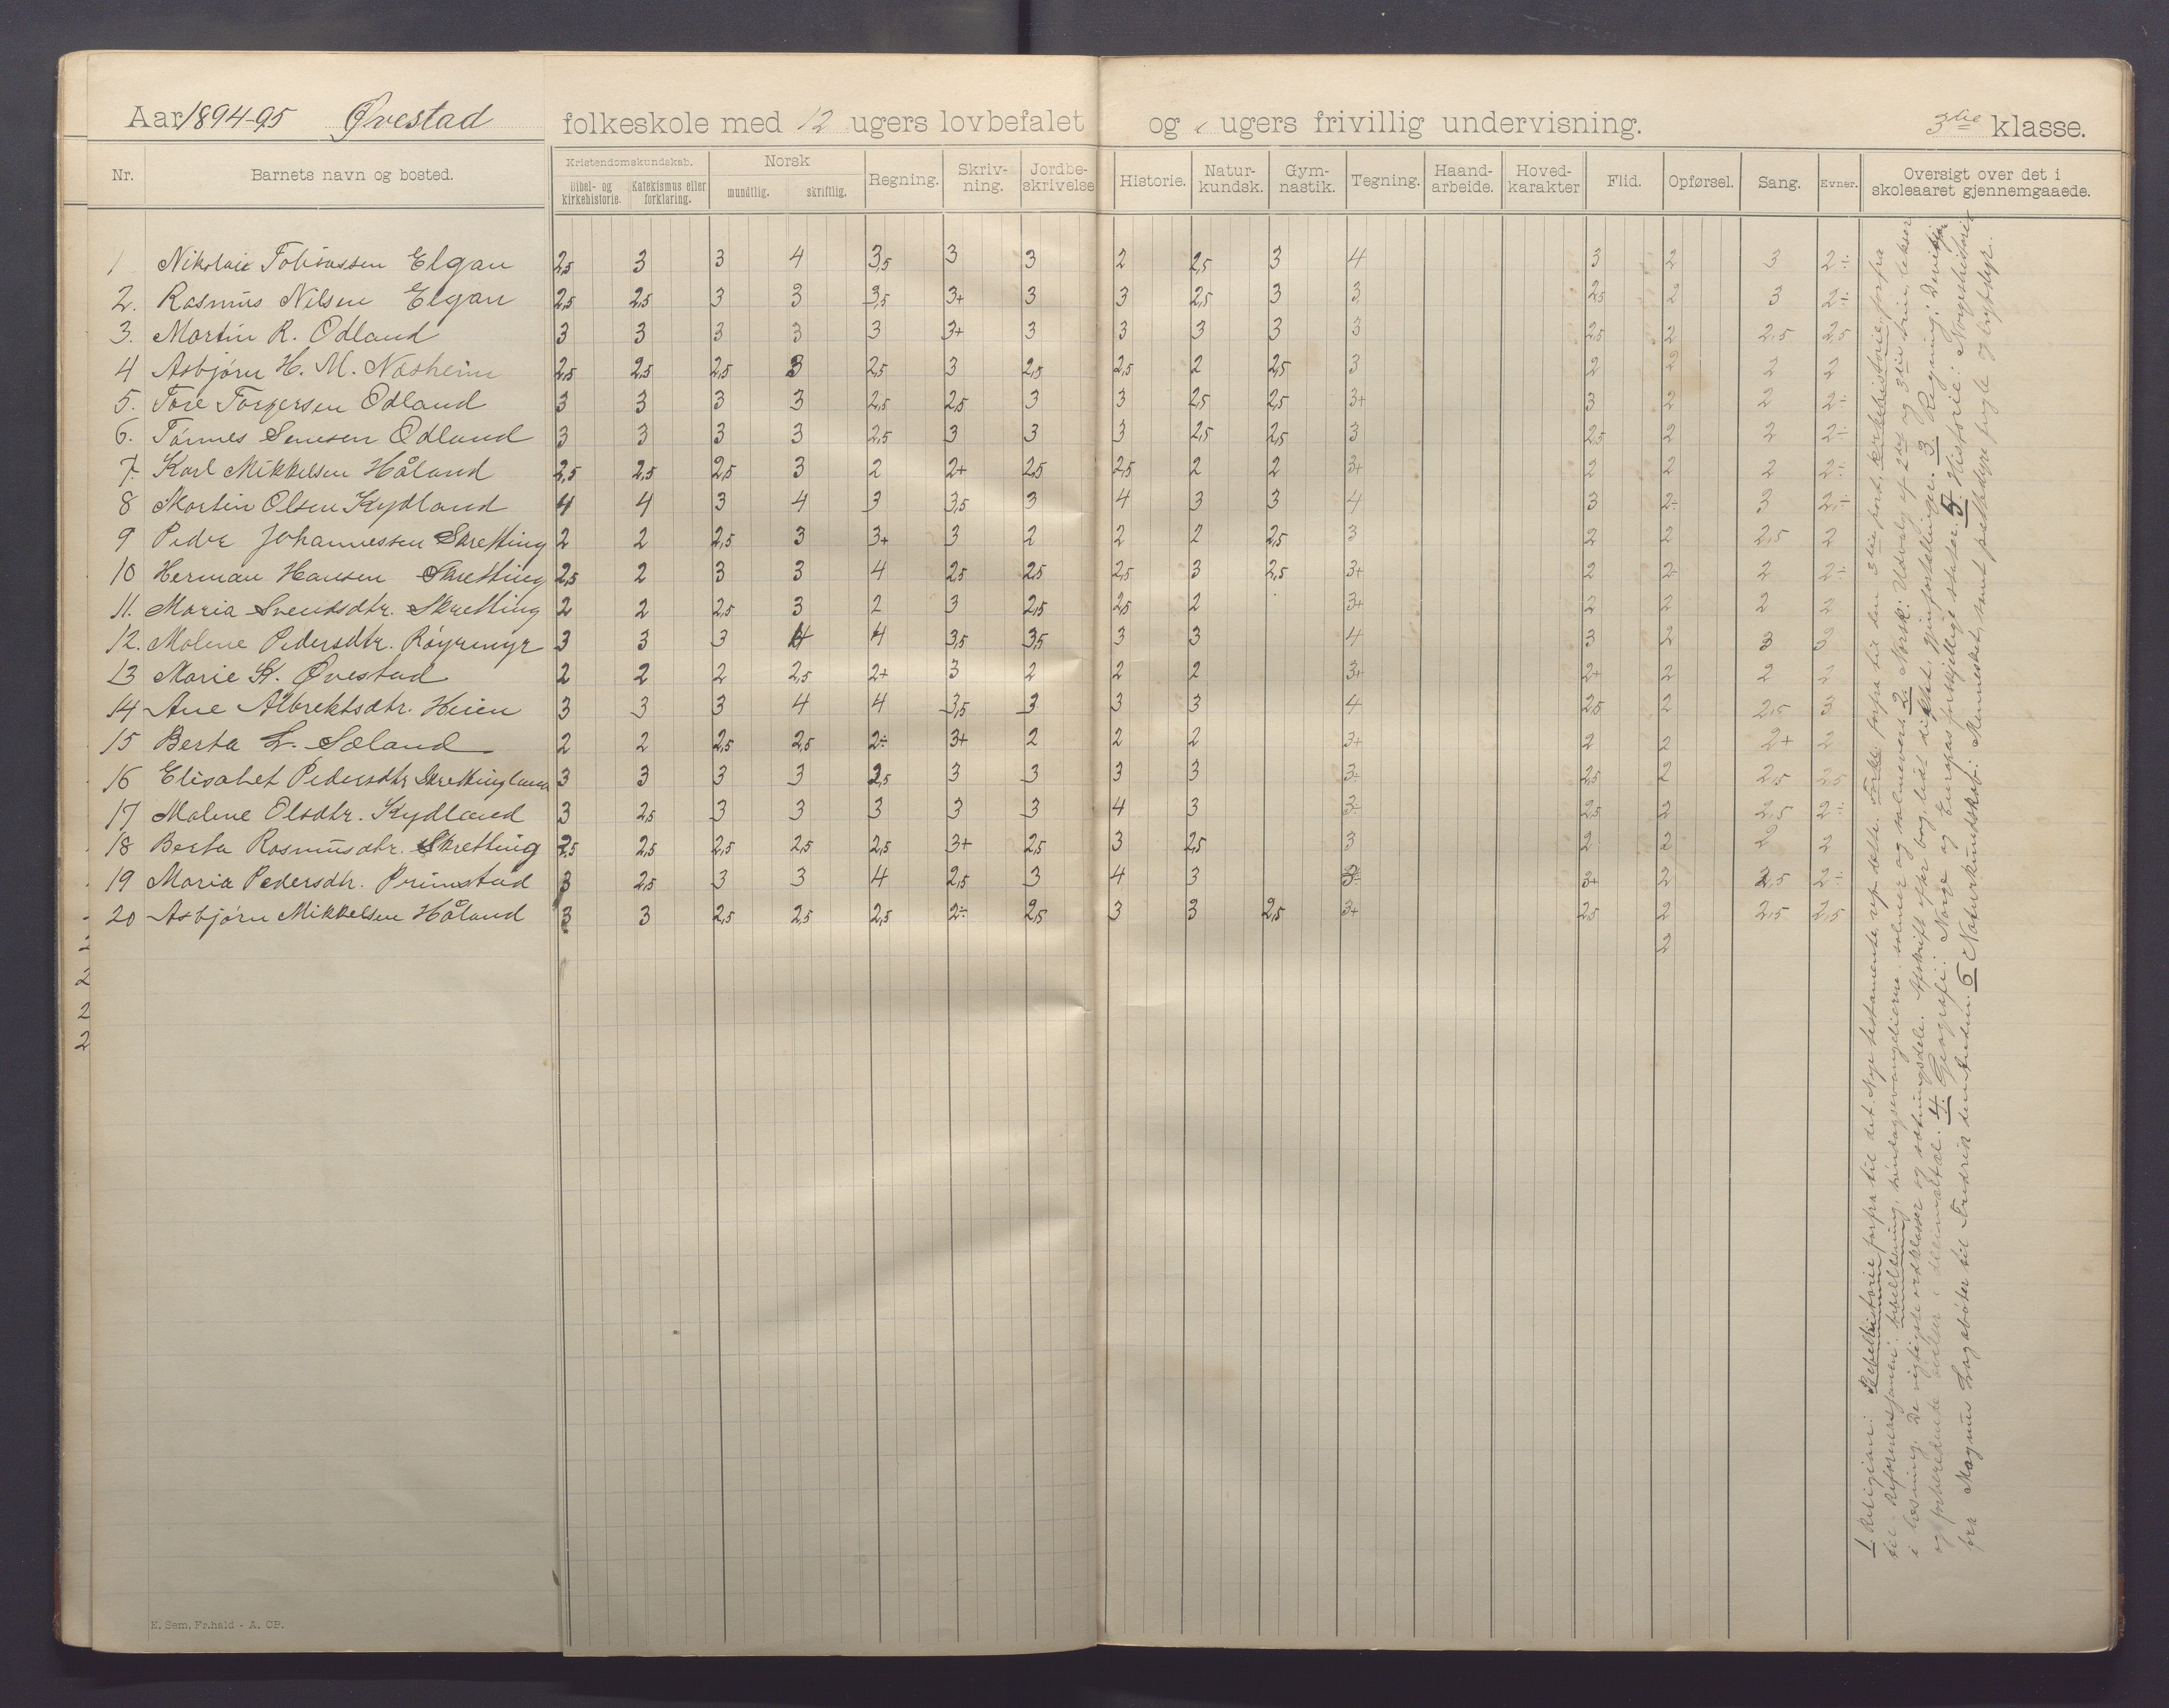 Aar 1894-95 Øvestad folkeskole med 12 ugers lovbefalet og ugers frivillig undervisning. 3die klasse.
Nr. Barnets navn og bosted. Kristendomskundskab. Bibel- og kirkehistorie. Katekismus eller forklaring. Norsk mundtlig. skriftlig. Regning. Skriv-ning. Jordbe-skrivelse Historie. Natur-kundsk. Gym-nastik. Tegning. Haand-arbeide. Hoved-karakter Flid. Opførsel. Sang. Evner. Oversigt over det i skoleaaret gjennemgaaede.
1 Nikolai Tobiassen Elgan 2,5 3 3 4 3,5 3 3 2 2,5 3 4 3 2 3 2÷
2. Rasmus Nilsen Elgan 2,5 2,5 3 3 3,5 3+ 3 3 2,5 3 3 2,5 2 3 2÷
3. Martin R. Odland 3 3 3 3 3 3+ 3 3 3 3 3 2,5 2 2,5 2,5
4 Asbjørn H. M. Næsheim 2,5 2,5 2,5 3 2,5 3 2,5 2,5 2 2,5 3 2 2 2 2
5. Tore Torgersen Odland 3 3 3 3 2,5 2,5 3 3 2,5 2,5 3+ 3 2 2 2÷
6. Tønnes Senesen Odland 3 3 3 3 2,5 3 3 3 2,5 2,5 3 2,5 2 2 2÷
7. Karl Mikkelsen Håland 2,5 2,5 2,5 3 2 2+ 2,5 2,5 2 2 3+ 2 2 2 2÷
8 Martin Olsen Kydland 4 4 3 4 3 3,5 3 4 3 3 4 3 2÷ 3 2÷
9 Peder Johannessen Skretting 2 2 2,5 3 3+ 3 2 2 2 2,5 3 2 2 2,5 2
10 Herman Hansen Skretting 2,5 2 3 3 4 2,5 2,5 2,5 3 2,5 3+ 2 2 2 2÷
11. Maria Svendsdtr. Skretting 2 2 2,5 3 2 3 2,5 2,5 2 3+ 2 2 2 2
12. Malene Pedersdtr. Røyrmyr 3 3 3 4 4 3,5 3,5 3 3 4 3 2 3 3
13 Marie K. Øvestad 2 2 2 2,5 2+ 3 2 2 2 3+ 2+ 2 2 2
14 Ane Albrektsdtr. Heien 3 3 3 4 4 3,5 3 3 3 4 2,5 2 2,5 3
15 Berta L. Sæland 2 2 2,5 2,5 2÷ 3+ 2 2 2 3+ 2 2 2+ 2
16 Elisabet Pedersdtr Skrettingland 3 3 3 3 2,5 3 3 3 3 3÷ 2,5 2 2,5 2,5
17 Malene Olsdtr. Kydland 3 2,5 3 3 3 3 3 4 3 3÷ 2,5 2 2,5 2÷
18 Berta Rasmusdtr. Skretting 2,5 2,5 2,5 2,5 2,5 3+ 2,5 3 2,5 3 2 2 2 2
19 Maria Pedersdtr. Primstad 3 2,5 3 3 4 2,5 3 4 3 3÷ 3+ 2 2,5 2÷
20 Asbjørn Mikkelsen Håland 3 3 2,5 2,5 2,5 2÷ 2,5 3 3 2,5 3+ 2,5 2 2,5 2,5
2
2
2
2
1 Religion: Bibelhistorie forfra til det nye testamente og dette forfra til den 3die part, kirkehistorie, forfra
til Reformasjonen: bibellæsning, søndagsevangelierne salmer og salmevers. 2 Norsk: Udvalg af 2det og 3die trins lekser
i læsning. De vigtigste ordklasser og sætningsdele. Afskrift efter bog, lidt diktat, gjenfortællinger. 3 Regning:
og forberedende øvelser i decimaltal. 4. Geografi: Norge og Europas forskjellige stater. 5. Historie: Norgeshistorie
fra Magnus Lagabøter til Fredrik den anden. 6 Naturkundskab: Mennesket, samt pattedyr, fugle og krybdyr.
E. Sem, Fr.hald - A. CB.